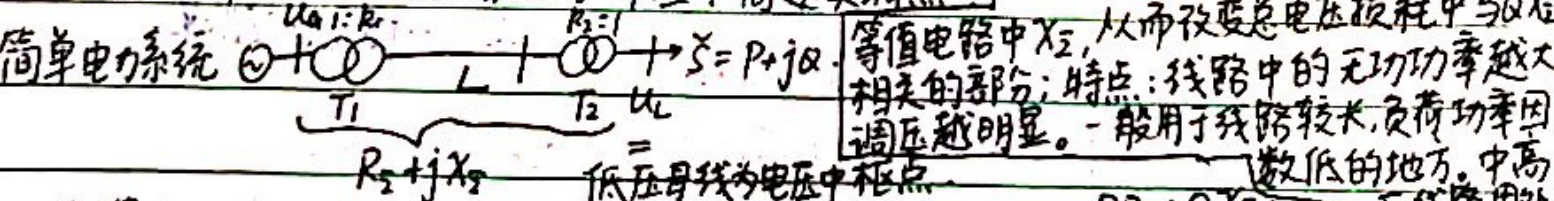 U_G 1:k₁
k₂:1
简单电力系统
L
S̃=P+jQ.
T₁
T₂
U_L
R_Σ+jX_Σ
低压母线为电压中枢点.
等值电路中X_Σ,从而改变总电压损耗中与Q有
相关的部分;特点:线路中的无功功率越大
调压越明显。一般用于线路较长,负荷功率因
数低的地方。中高